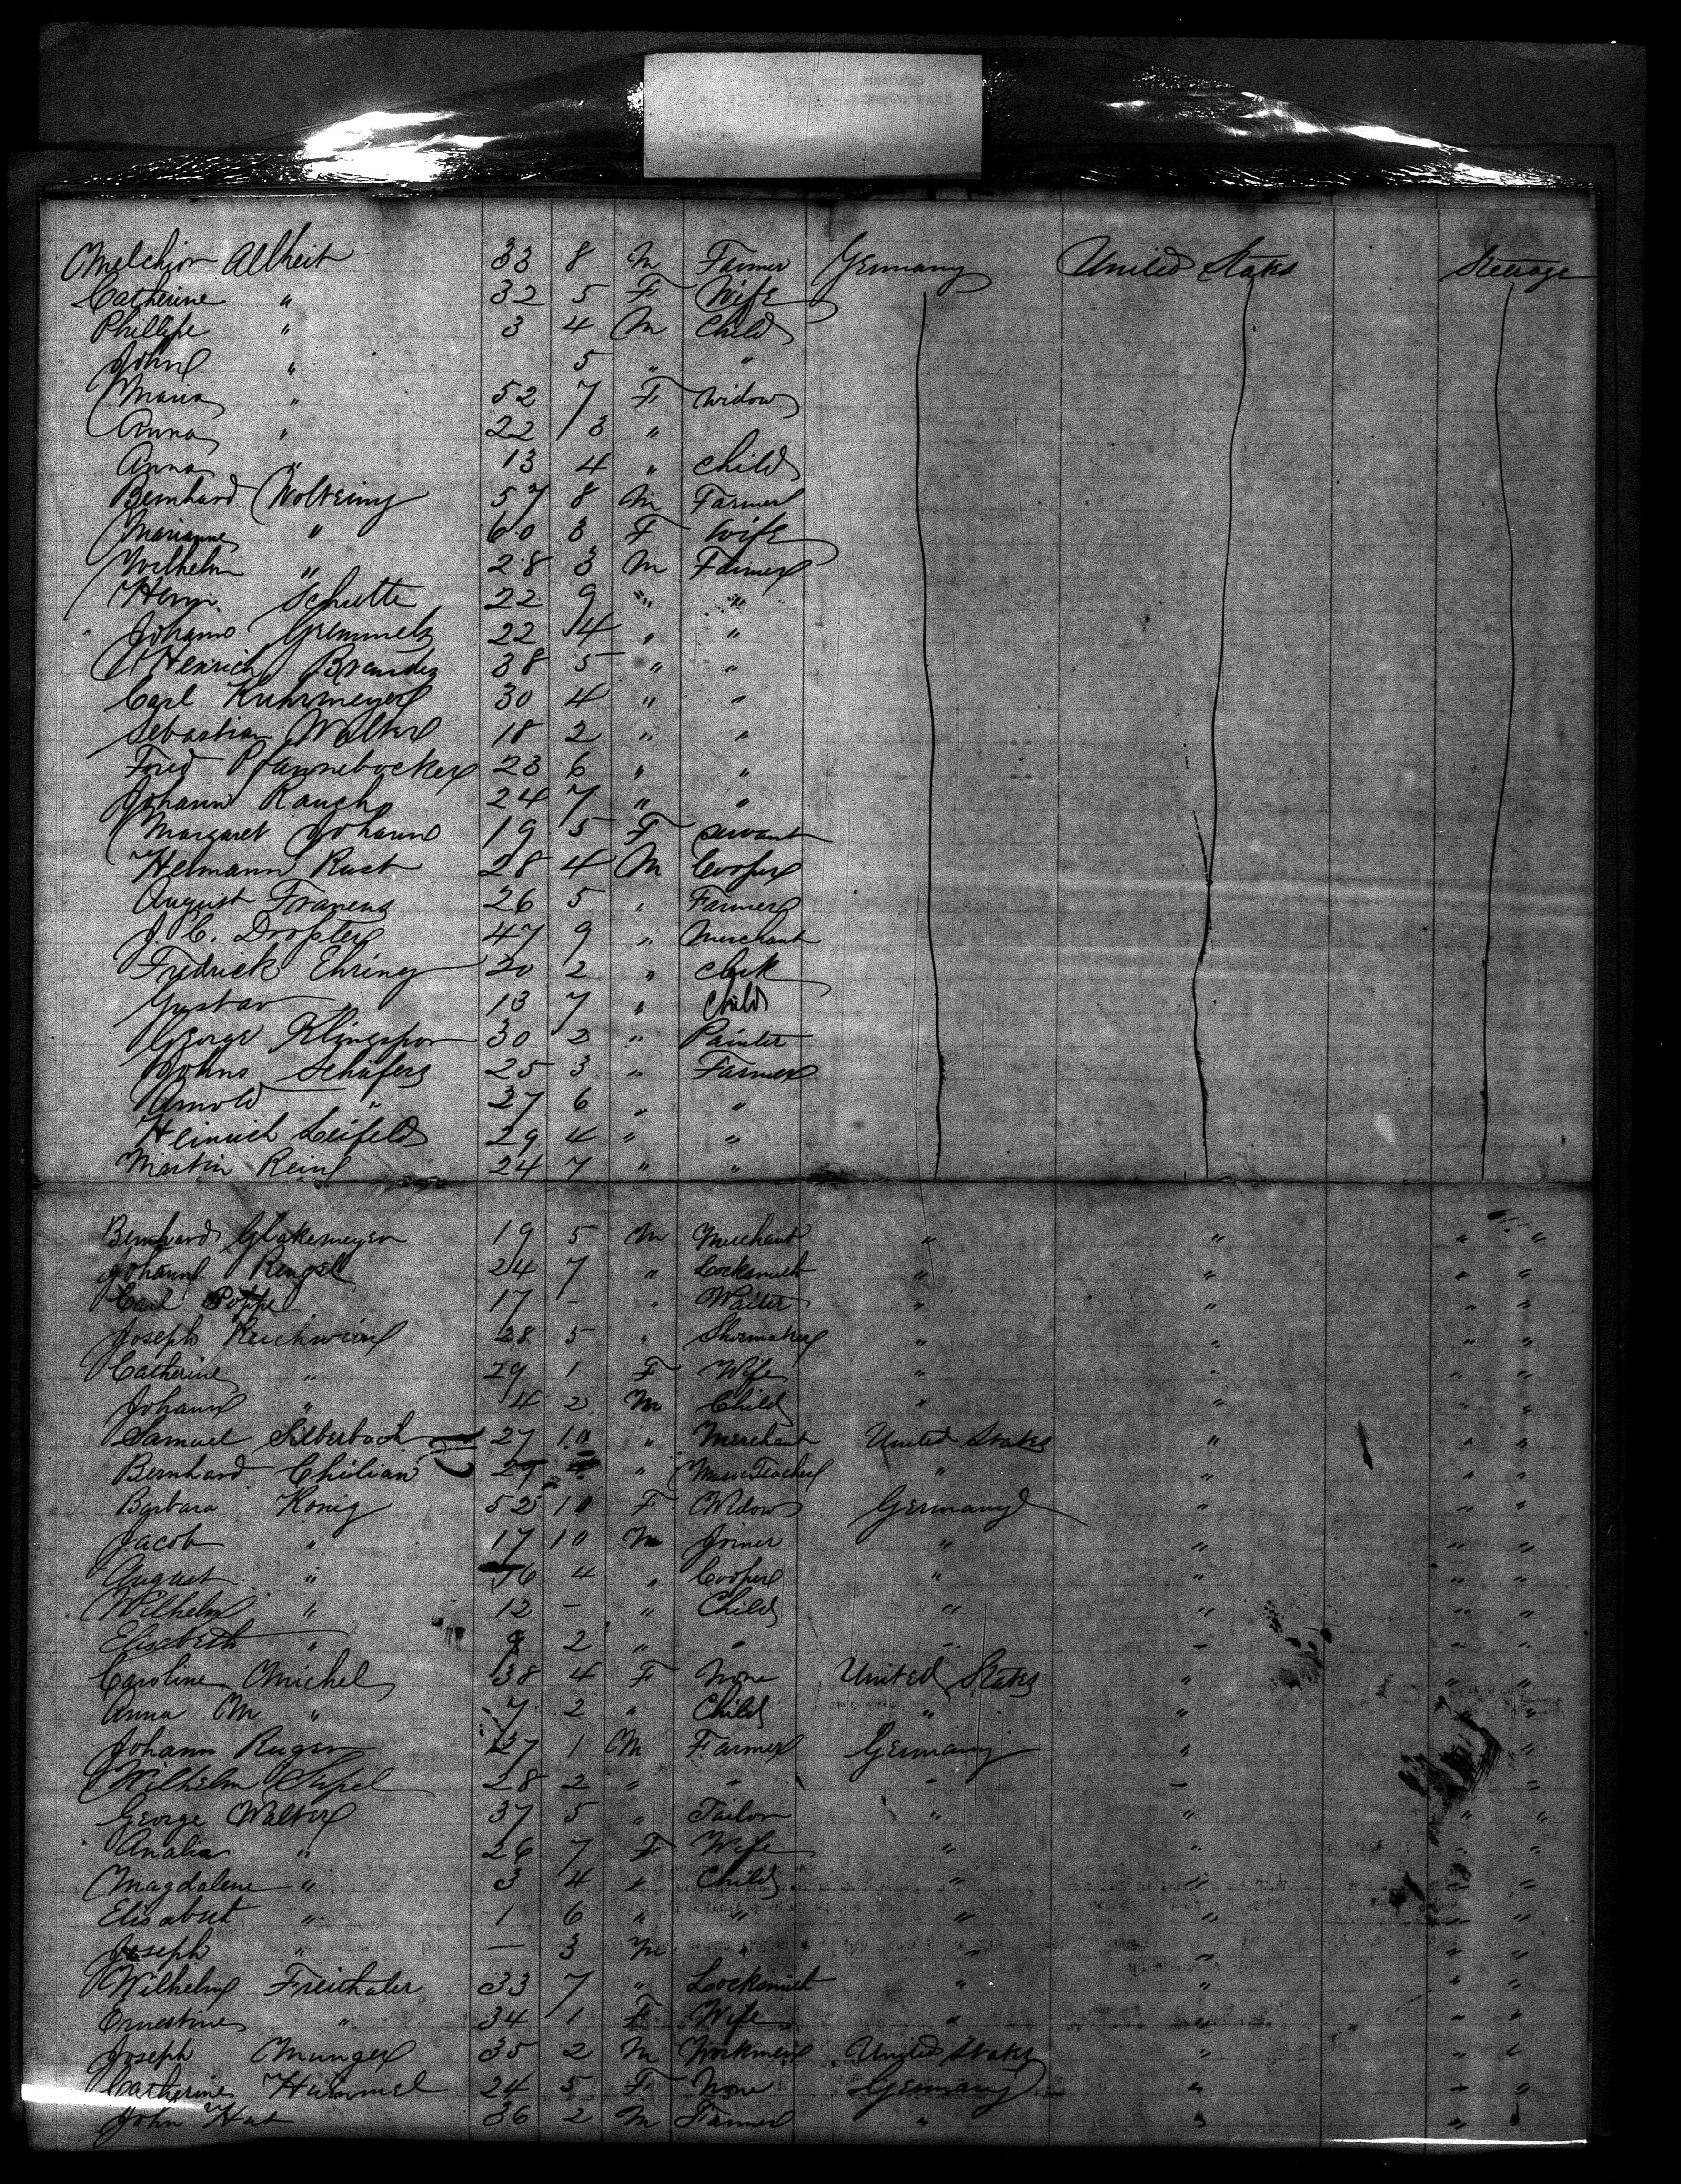 Melchior Allheit 33 8 M Farmer Germany United States Steerage
Catherine " 32 5 F Wife
Phillipe " 3 4 M Child
John " 5 " "
Maria " 52 7 F Widow
Anna " 22 3 "
Anna " 13 4 " Child
Bernhard 57 8 M Farmer
Marianne " 60 3 F Wife
Wilhelm " 28 3 M Farmer
Schutte 22 9 " "
Johann Gremmels 22 4 " "
Heinrich Brandes 38 5 " "
Carl Kuhrmeyer 30 4 " "
Sebastian Walter 18 2 " "
Fried Pfannebecker 23 6 " "
Johann Rauch 24 7 " "
Margaret Johann 19 5 F Servant
Hermann Rust 28 4 M Cooper
August Franens 26 5 " Farmer
J. C. Dropter 47 9 " Merchant
Fredrick Ehring 20 2 " Clerk
Gustav " 13 7 " Child
George Klingspor 30 2 " Painter
Johns Schafers 25 3 " Farmer
Arnold " 27 6 " "
Heinrich Leifeld 29 4 " "
Martin Rein 24 7 " "
Bernhard Glakemeyer 19 5 M Merchant " " " "
Johann Rengel 24 7 " Locksmith " " " "
Carl Poppe 17 - " Waiter " " " "
Joseph Reichwein 28 5 " Shoemaker " " " "
Catherine " 29 1 F Wife " " " "
Johann " 4 2 M Child " " " "
Samuel Silberbach 27 10 " Merchant United States " " "
Bernhard Chilian 29 " Music Teacher " " " "
Barbara Konig 52 10 F Widow Germany " " "
Jacob " 17 10 M Joiner " " " "
August " 16 4 " Cooper " " " "
Wilhelm " 12 - " Child " " " "
Elisabeth " 9 2 " " " " " "
Caroline Michel 38 4 F None United States " " "
Anna M " 7 2 " Child " " " "
Johann Ruger 27 1 M Farmer Germany " "
Wilhelm 28 2 " " " " "
George Walter 37 5 " Tailor " " " "
Analia " 26 7 F Wife " " " "
Magdalene " 3 4 " Child " " " "
Elisabeth " 1 6 " " " " " "
Joseph " - 3 M " " " " "
Wilhelm Freithaler 33 7 " Locksmith " " " "
Ernestine " 34 1 F Wife " " " "
Joseph Munger 35 2 M Workmen United States " " "
Catherine Hummel 24 5 F None Germany " " "
John Hat 36 2 M Farmer " " " "